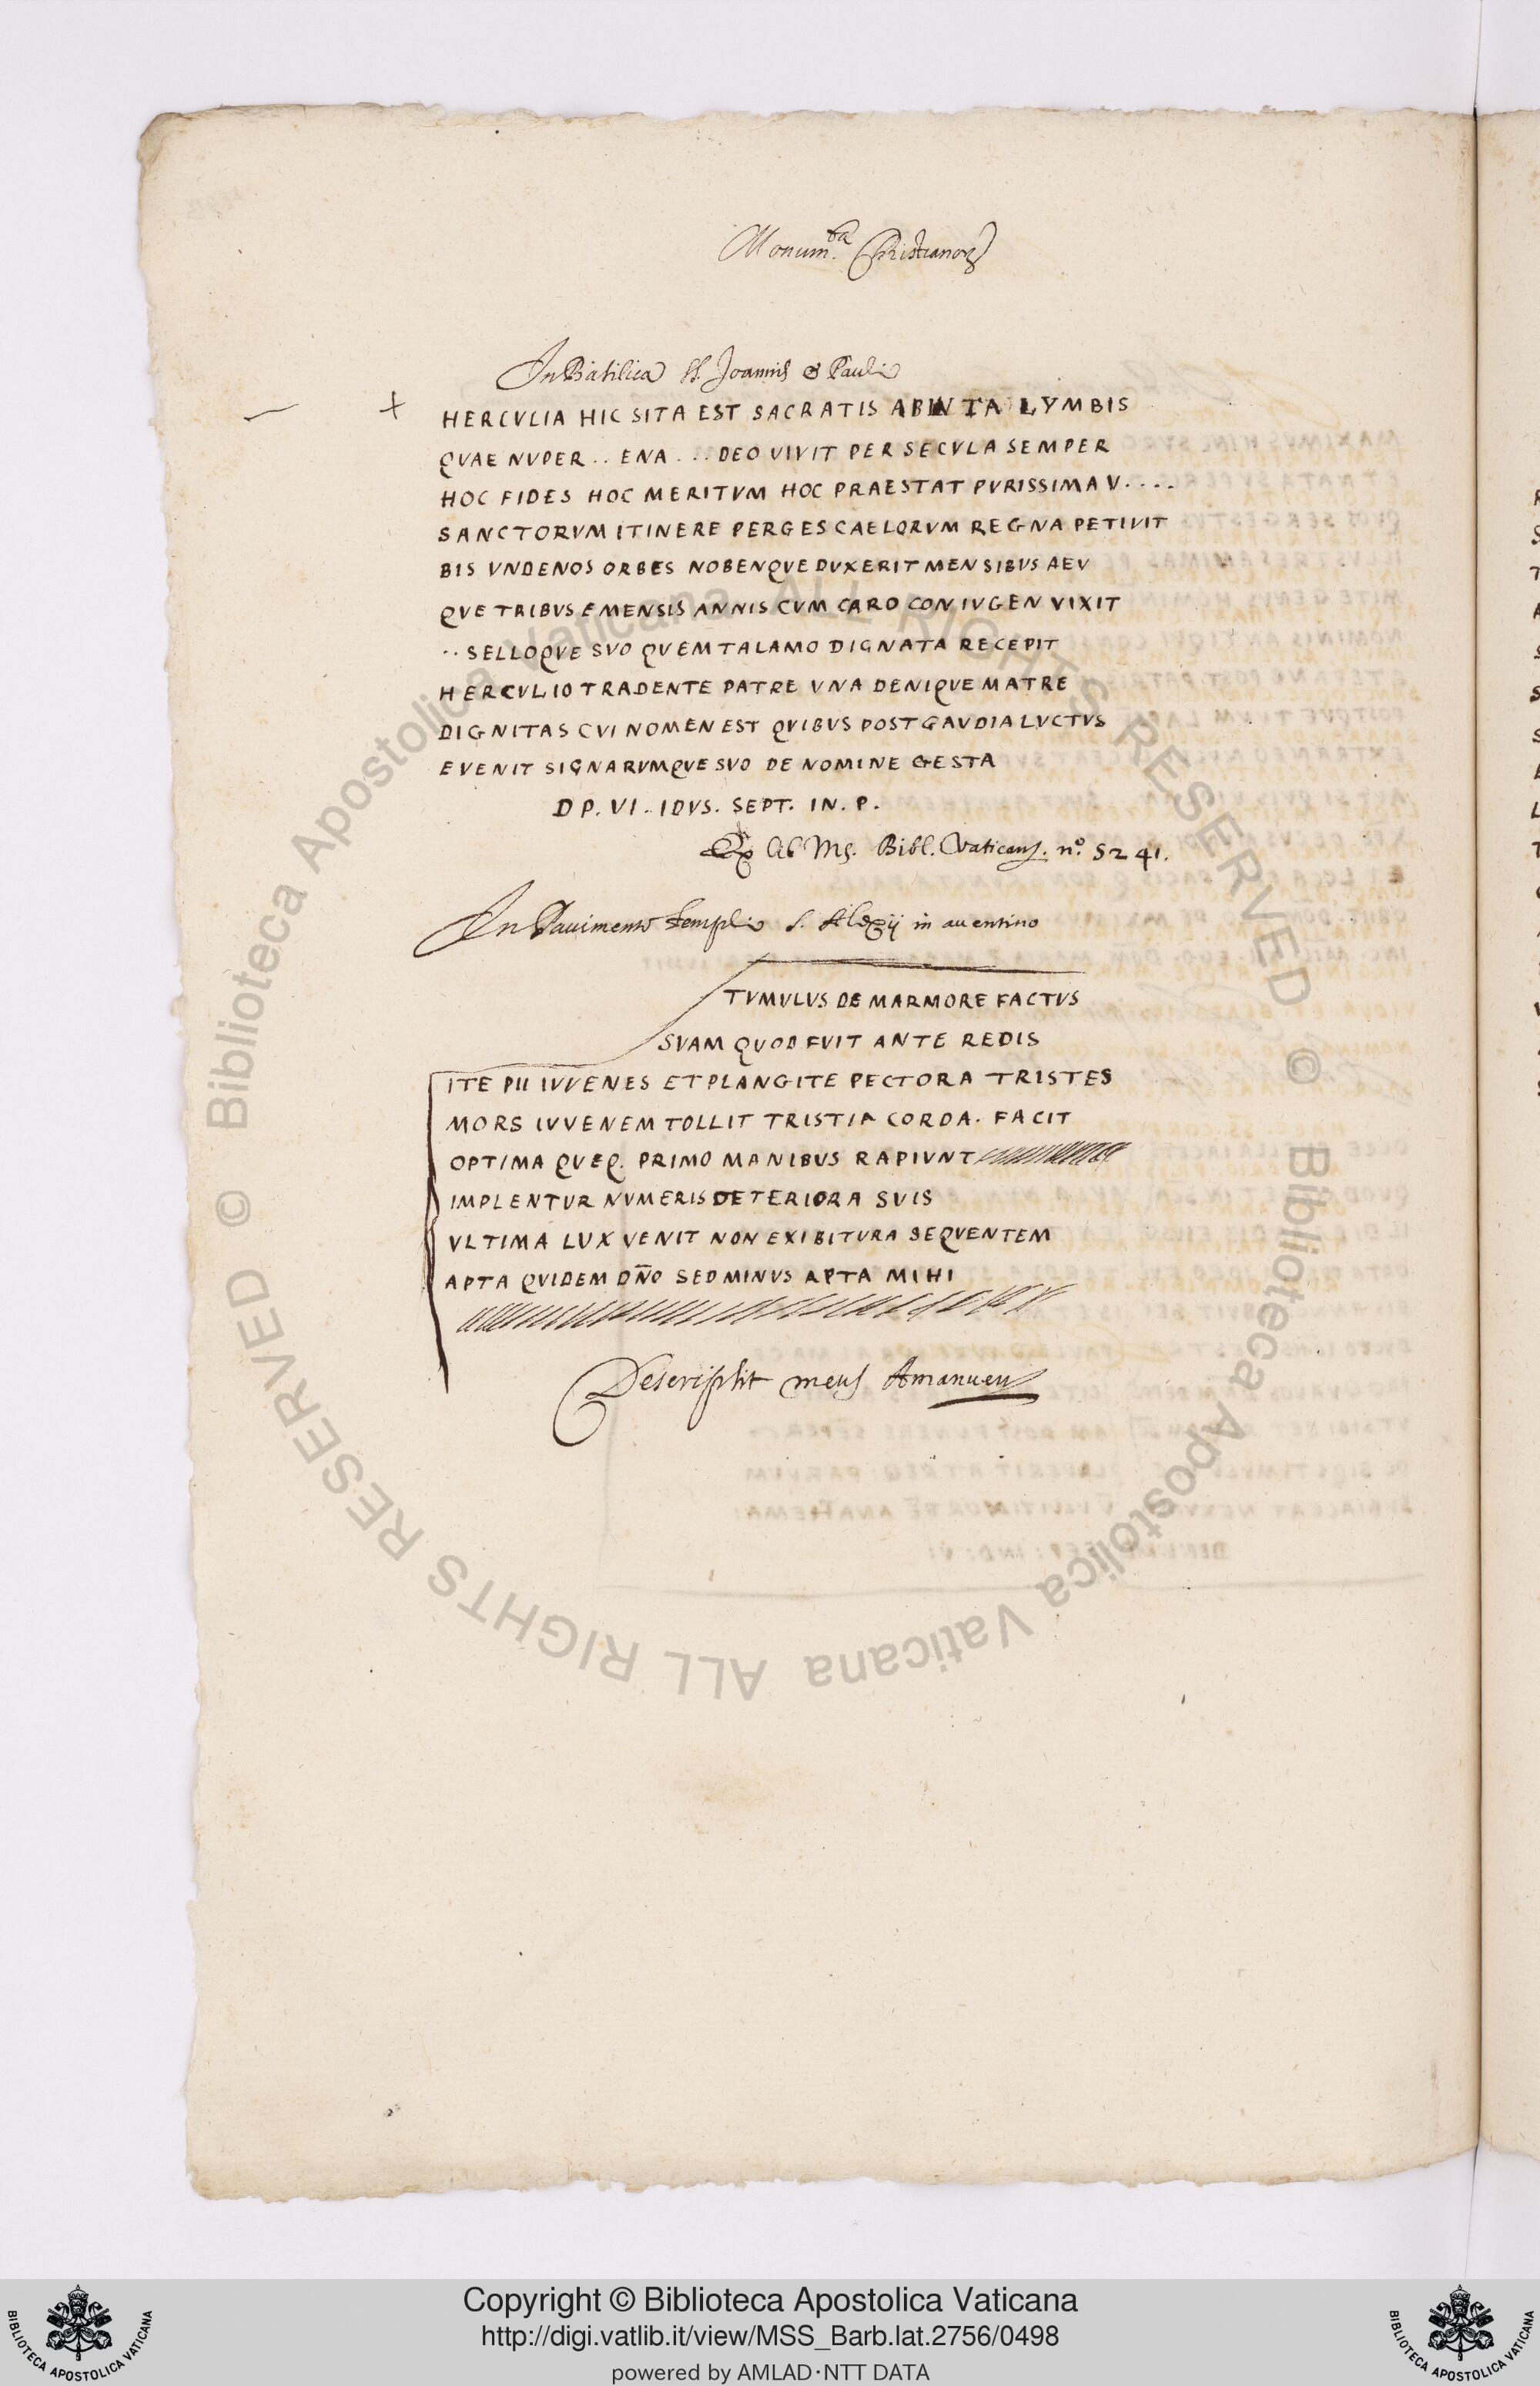 Monum.ta Christianor
In Basilica SS. Joannis & Pauli
+ HERCVLIA HIC SITA EST SACRATIS ABINTA LYMBIS
QVAE NVPER .. ENA ... DEO VIVIT PER SECVLA SEMPER
HOC FIDES HOC MERITVM HOC PRAESTAT PVRISSIMA V....
SANCTORVM ITINERE PERGES CAELORVM REGNA PETIVIT
BIS VNDENOS ORBES NOBENQVE DVXERIT MENSIBVS AEV
QVE TRIBVS EMENSIS ANNIS CVM CARO CONIVGEN VIXIT
.. SELLOQVE SVO QVEM TALAMO DIGNATA RECEPIT
HERCVLIO TRADENTE PATRE VNA DENIQVE MATRE
DIGNITAS CVI NOMEN EST QVIBVS POST GAVDIA LVCTVS
EVENIT SIGNARVMQVE SVO DE NOMINE GESTA
D P. VI. IDVS. SEPT. IN. P.
Ab Ms. Bibl. Vatican. nº. 5241.
In Pavimento templi S. Alexij in aventino
TVMULUS DE MARMORE FACTVS
SVAM QVOD FVIT ANTE REDIS
ITE PII IVVENES ET PLANGITE PECTORA TRISTES
MORS IVVENEM TOLLIT TRISTIA CORDA. FACIT
OPTIMA QVEQ. PRIMO MANIBVS RAPIVNT
IMPLENTUR NVMERIS DETERIORA SVIS
VLTIMA LUX VENIT NON EXIBITVRA SEQVENTEM
APTA QVIDEM DÑO SED MINVS APTA MIHI
Descripsit meus Amanuen
© Biblioteca Apostolica Vaticana ALL RIGHTS RESERVED © Biblioteca Apostolica Vaticana ALL RIGHTS RESERVED
Copyright © Biblioteca Apostolica Vaticana
http://digi.vatlib.it/view/MSS_Barb.lat.2756/0498
powered by AMLAD·NTT DATA
BIBLIOTECA APOSTOLICA VATICANA
BIBLIOTECA APOSTOLICA VATICANA